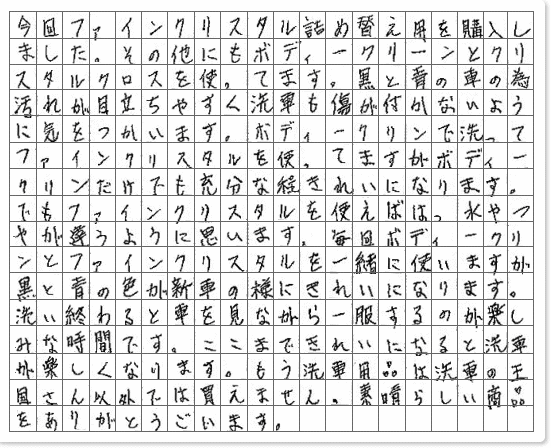 今回ファインクリスタル詰め替え用を購入し
ました。その他にもボディークリーンとクリ
スタルクロスを使ってます。黒と青の車の為
汚れが目立ちやすく洗車も傷が付かないよう
に気をつかいます。ボディークリンで洗って
ファインクリスタルを使ってますがボディー
クリンだけでも充分な程きれいになります。
でもファインクリスタルを使えばはっ水やつ
やが違うように思います。毎回ボディークリ
ンとファインクリスタルを一緒に使いますが
黒と青の色が新車の様にきれいになります。
洗い終わると車を見ながら一服するのが楽し
みな時間です。ここまできれいになると洗車
が楽しくなります。もう洗車用品は洗車の王
国さん以外では買えません。素晴らしい商品
をありがとうございます。